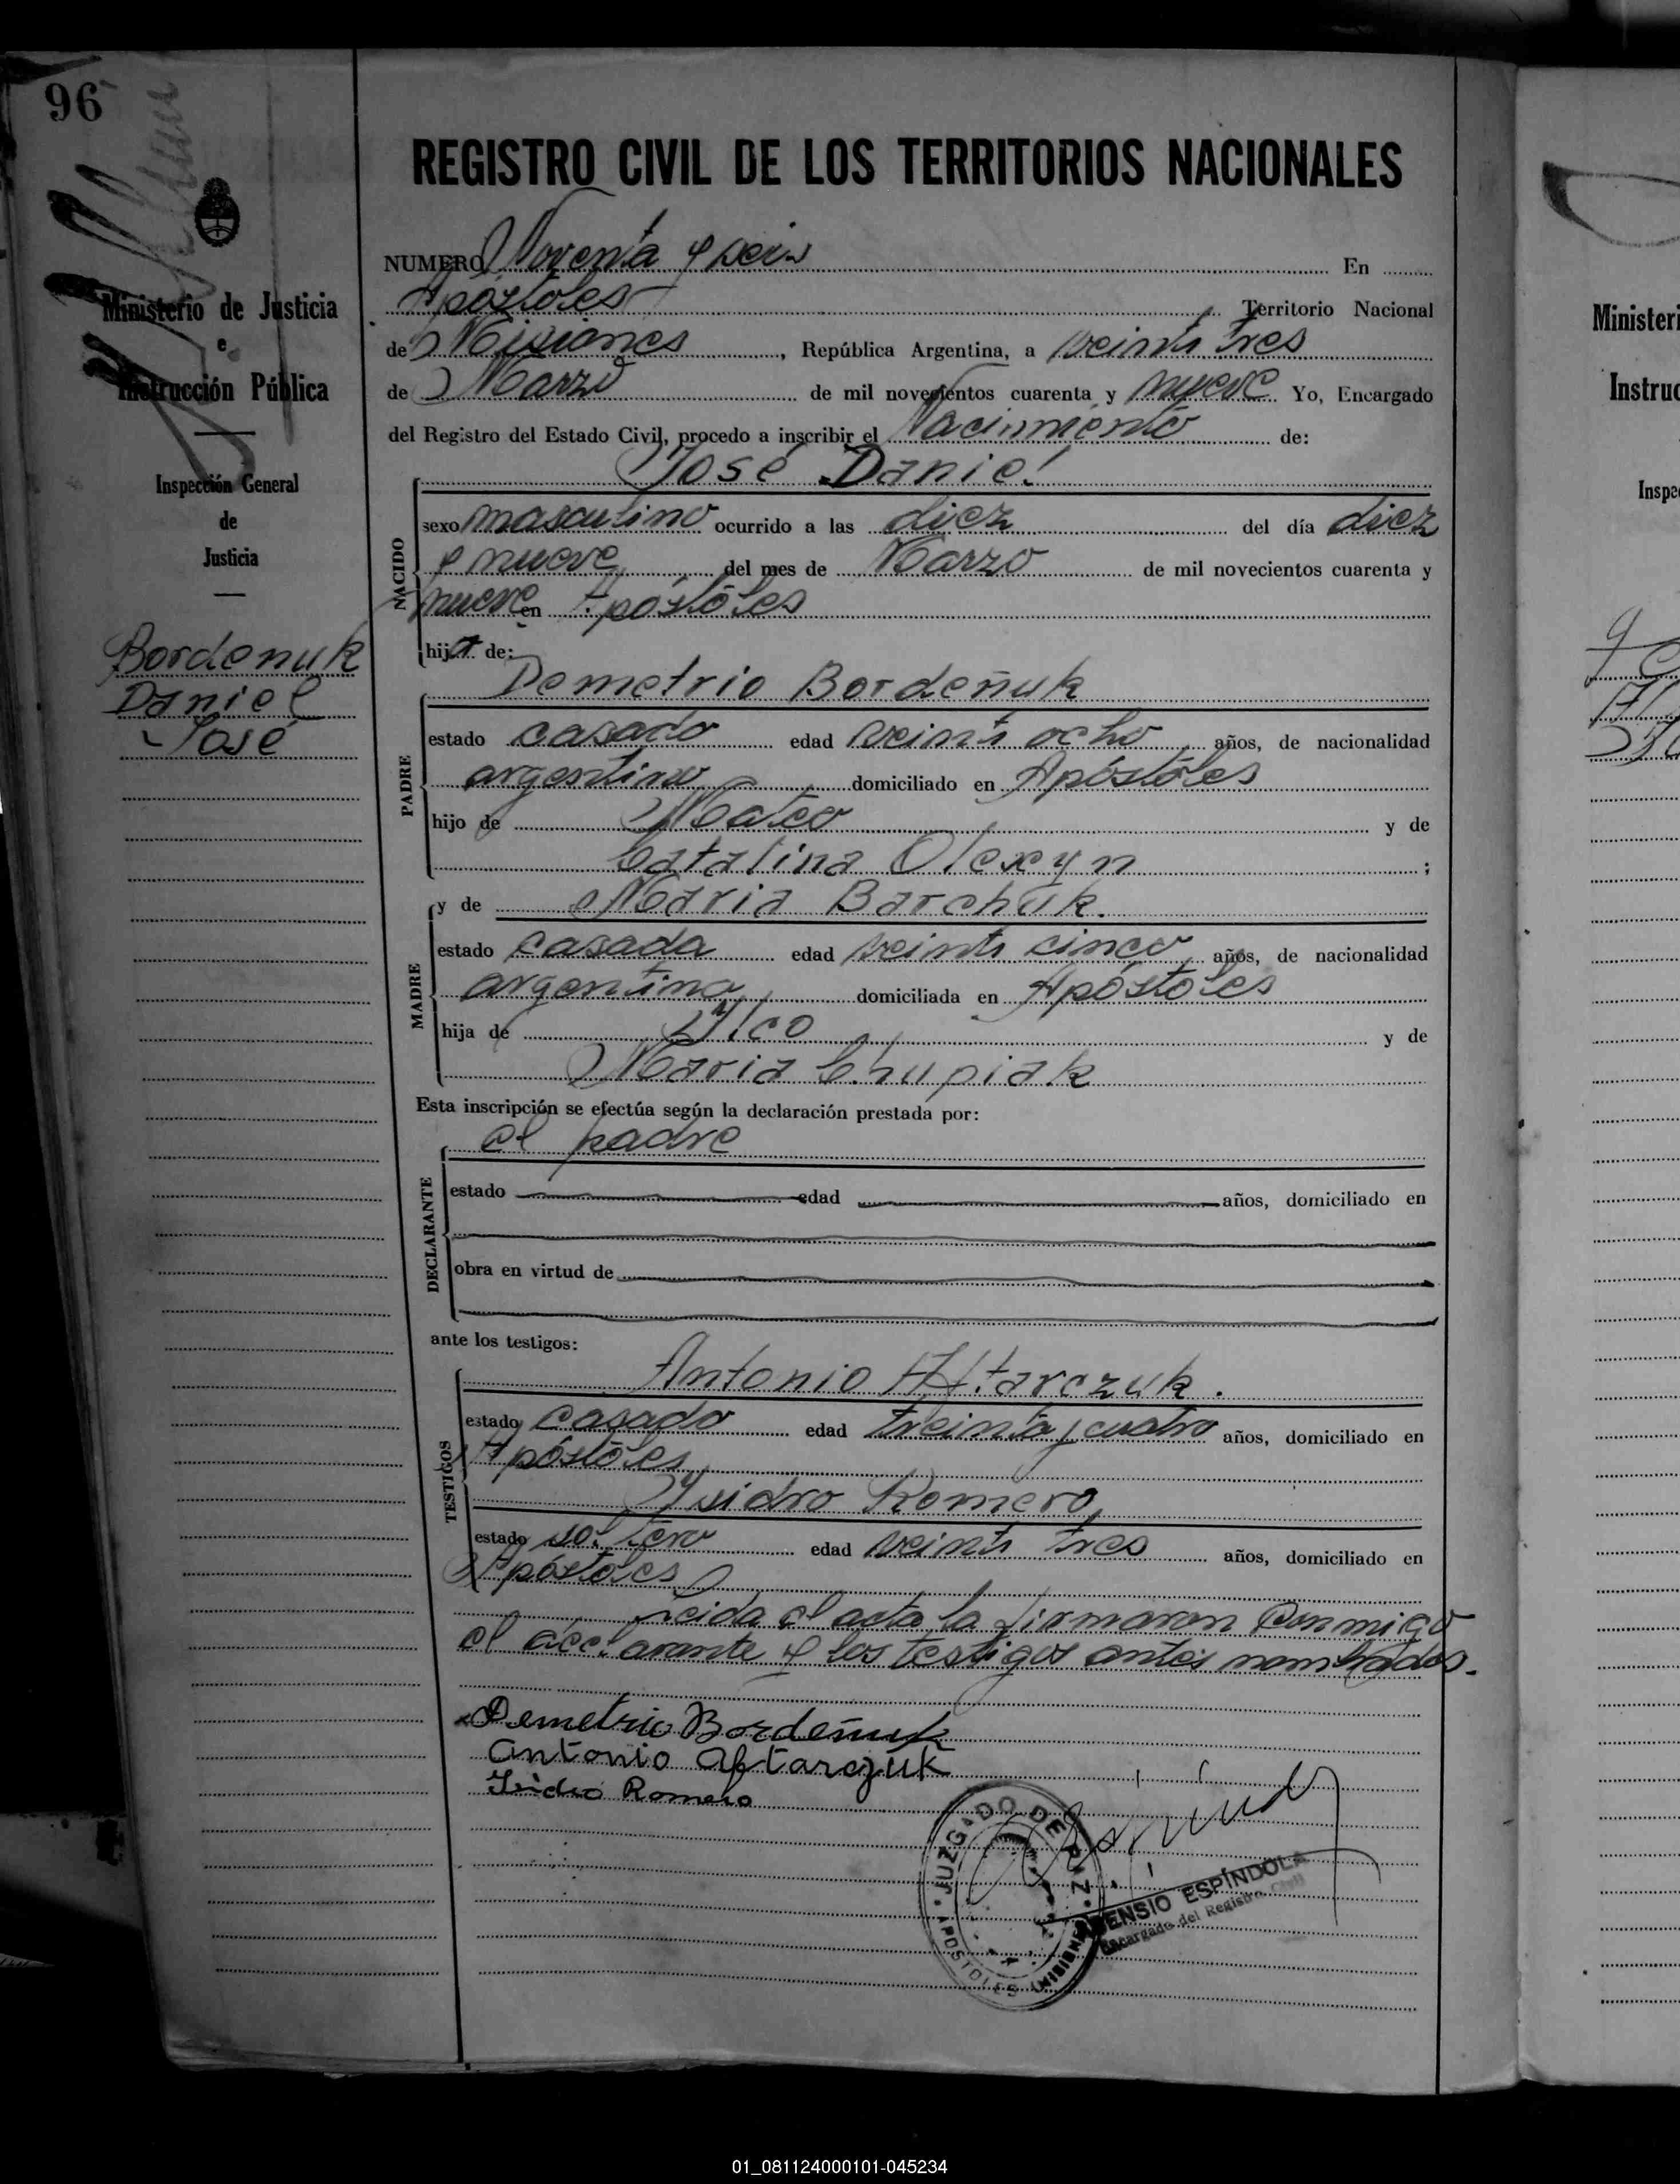 96
REGISTRO CIVIL DE LOS TERRITORIOS NACIONALES
NUMERO Noventa y seis En
Apóstoles Territorio Nacional
de Misiones, República Argentina, a veinti tres
de Marzo de mil novecientos cuarenta y nueve. Yo, Encargado
del Registro del Estado Civil, procedo a inscribir el Nacimiento de:
José Daniel
NACIDO
sexo masculino ocurrido a las diez del día diez
y nueve del mes de Marzo de mil novecientos cuarenta y
nueve en Apóstoles
hijo de:
Demetrio Bordeñuk
PADRE
estado casado edad veinti ocho años, de nacionalidad
argentino domiciliado en Apóstoles
hijo de Mateo y de
Catalina Olexyn ;
y de Maria Barchuk.
MADRE
estado casada edad veinti cinco años, de nacionalidad
argentina domiciliada en Apóstoles
hija de y de
Maria Chupiak
Esta inscripción se efectúa según la declaración prestada por:
el padre
DECLARANTE
estado edad años, domiciliado en
obra en virtud de
ante los testigos:
Antonio Aftarczuk.
TESTIGOS
estado casado edad treinta y cuatro años, domiciliado en
Apóstoles
Ysidro Romero
estado soltero edad veinti tres años, domiciliado en
Apóstoles
Leida el acta la firmaron conmigo
el declarante y los testigos antes nombrados.
Demetrio Bordeñuk
Antonio Aftarczuk
Isidro Romero
JUZGADO DE PAZ
APOSTOLES (MISIONES)
ESPÍNDOLA
Encargado del Registro Civil
Ministerio de Justicia
e
Instrucción Pública
Inspección General
de
Justicia
Bordenuk
Daniel
José
Ministeri
Instruc
Inspe
01_081124000101-045234